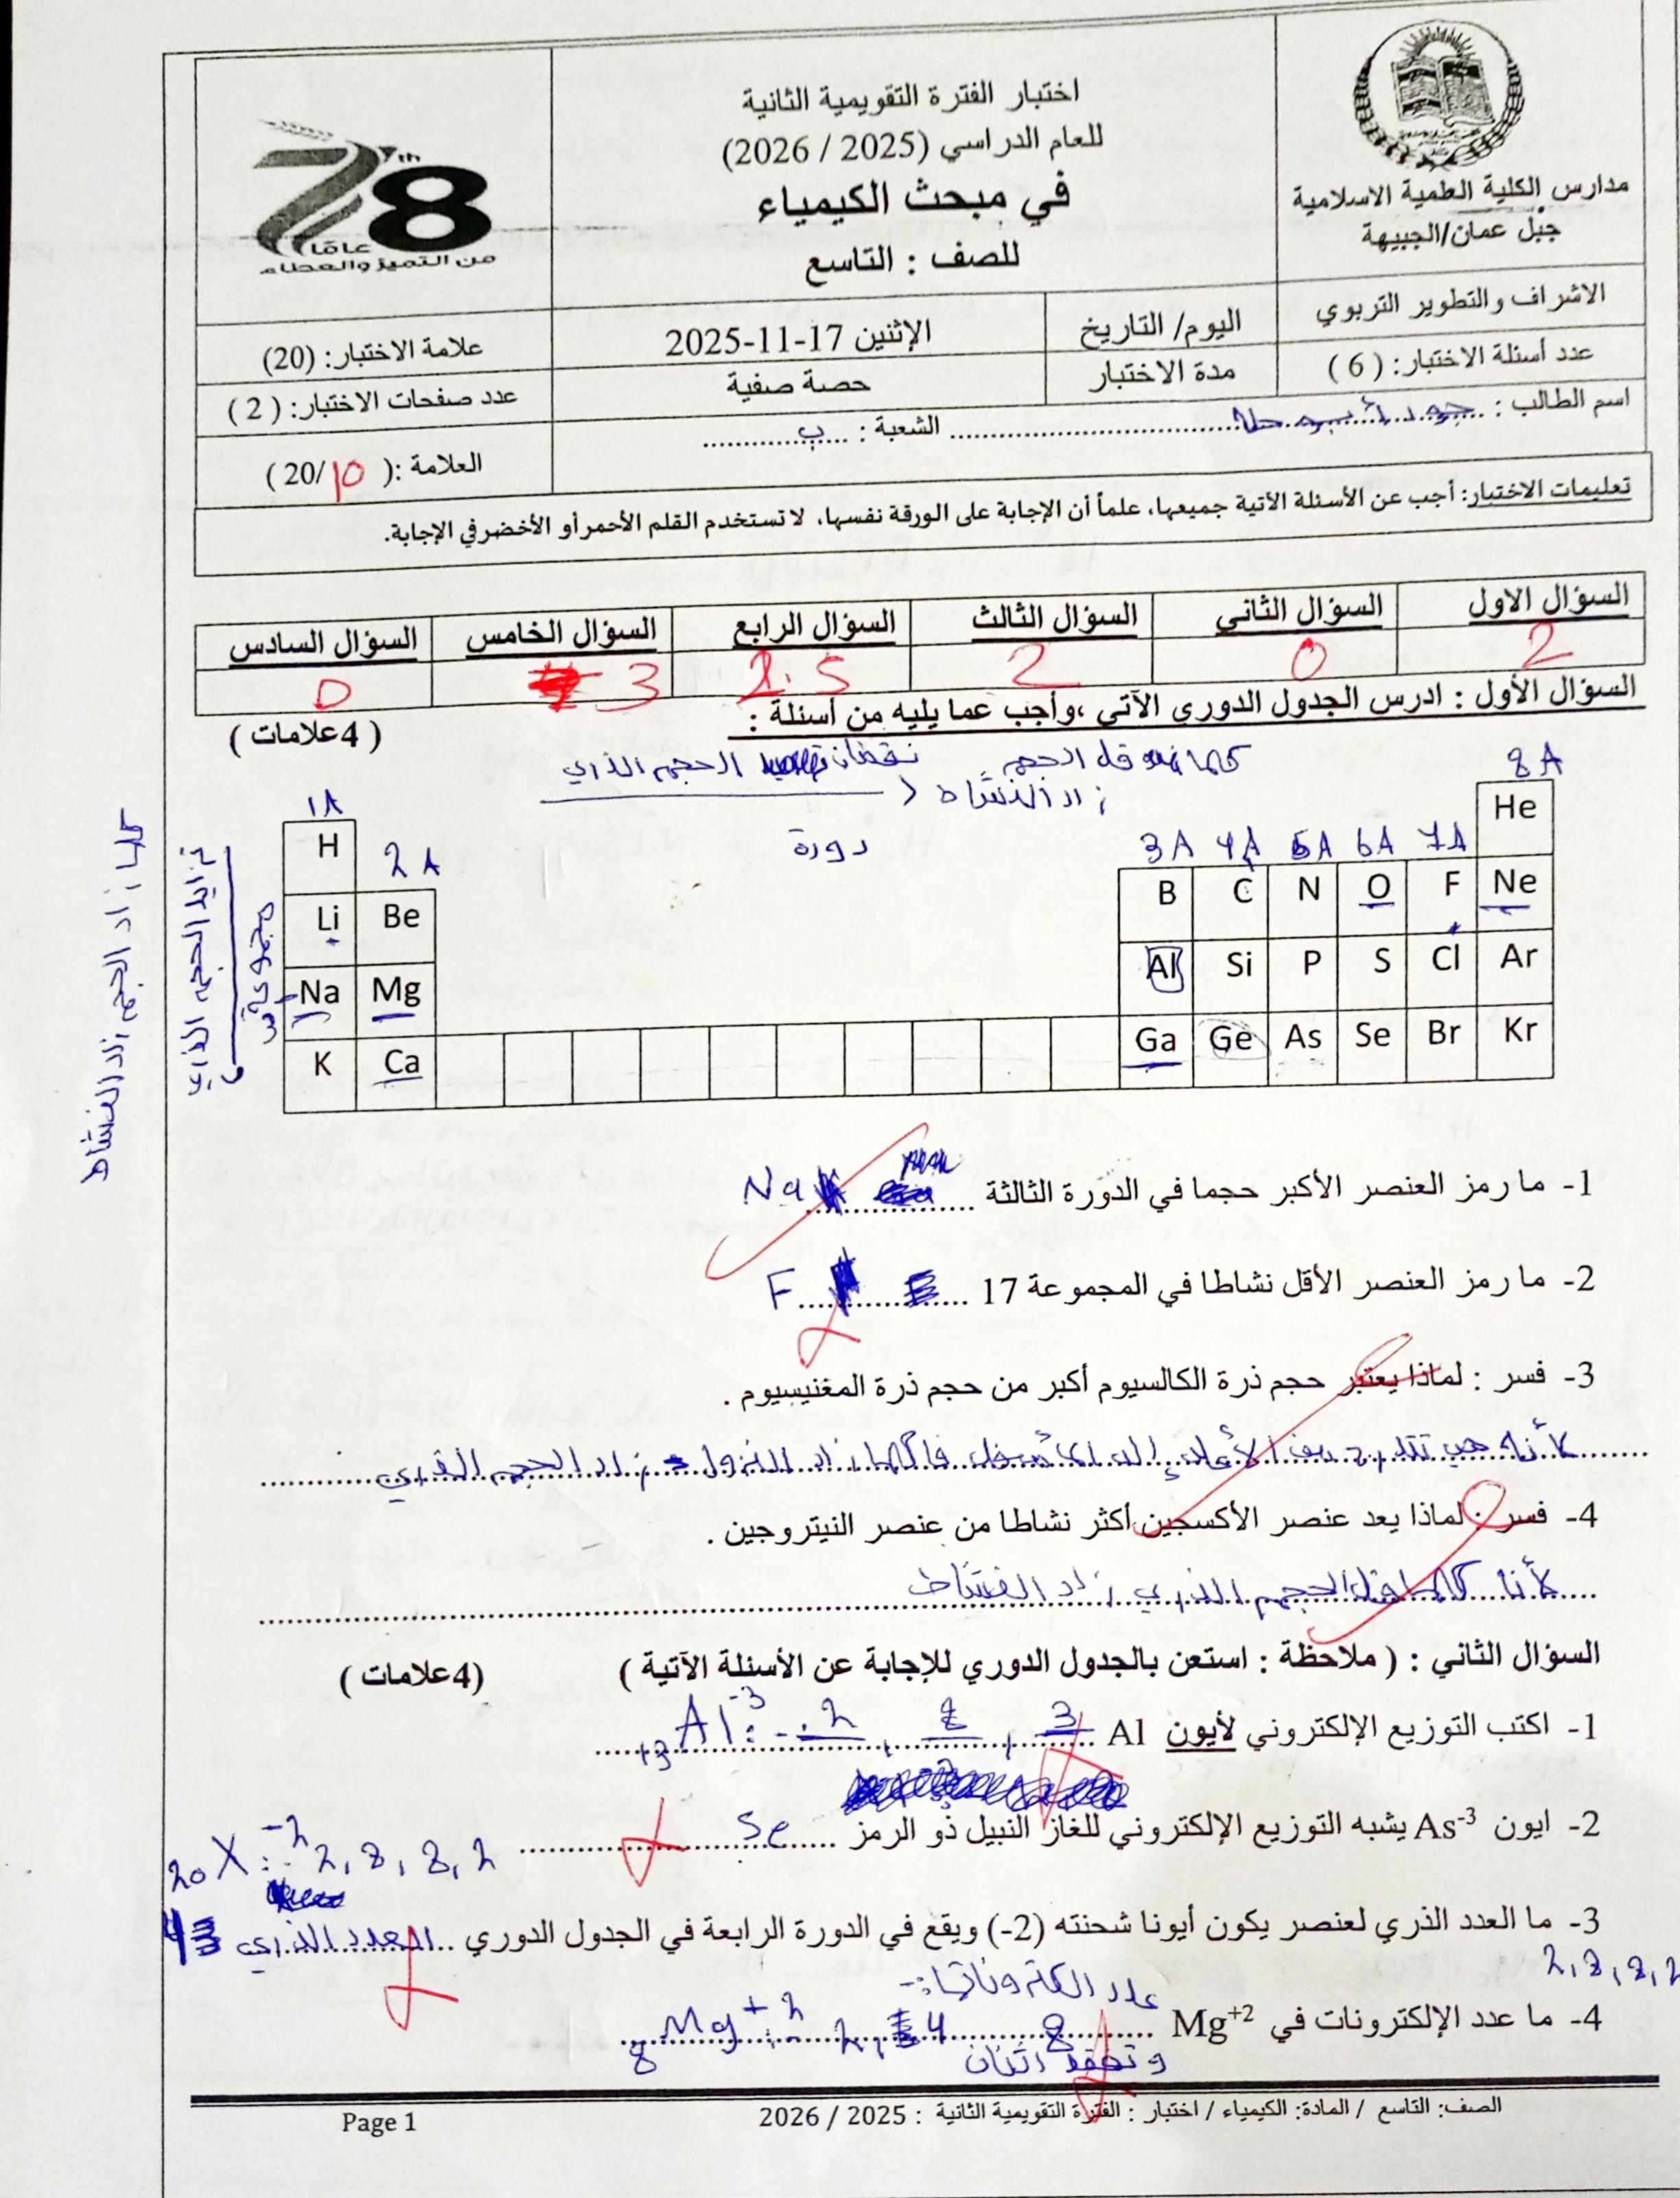 مدارس الكلية العلمية الاسلامية
جبل عمان/الجبيهة
اختبار الفترة التقويمية الثانية
للعام الدراسي (2025 / 2026)
في مبحث الكيمياء
للصف : التاسع
78th
عامًا
من التميز والعطاء
الاشراف والتطوير التربوي
اليوم/ التاريخ
الإثنين 17-11-2025
علامة الاختبار: (20)
عدد أسئلة الاختبار: ( 6 )
مدة الاختبار
حصة صفية
عدد صفحات الاختبار: ( 2 )
اسم الطالب : الشعبة : ب
العلامة :( 20/10 )
تعليمات الاختبار: أجب عن الأسئلة الآتية جميعها، علماً أن الإجابة على الورقة نفسها، لا تستخدم القلم الأحمر أو الأخضر في الإجابة.
السؤال الاول السؤال الثاني السؤال الثالث السؤال الرابع السؤال الخامس السؤال السادس
2 0 2 2.5 3 0
السؤال الأول : ادرس الجدول الدوري الآتي ،وأجب عما يليه من أسئلة :
( 4علامات )
كلما قل الحجم
زاد النشاط
نقصان الحجم الذري
دورة
كلما زاد الحجم زاد النشاط
تزايد الحجم الذري
مجموعة
1A 2A 3A 4A 5A 6A 7A 8A
H He
Li Be B C N O F Ne
Na Mg Al Si P S Cl Ar
K Ca Ga Ge As Se Br Kr
1- ما رمز العنصر الأكبر حجما في الدورة الثالثة Na
2- ما رمز العنصر الأقل نشاطا في المجموعة 17 F
3- فسر : لماذا يعتبر حجم ذرة الكالسيوم أكبر من حجم ذرة المغنيسيوم .
زاد النزول زاد الحجم الذري
4- فسر : لماذا يعد عنصر الأكسجين أكثر نشاطا من عنصر النيتروجين .
لأنا كلما قل الحجم الذري زاد النشاط
السؤال الثاني : ( ملاحظة : استعن بالجدول الدوري للإجابة عن الأسئلة الآتية ) (4علامات )
1- اكتب التوزيع الإلكتروني لأيون Al
13Al-3: 2, 8, 3
2- ايون As-3 يشبه التوزيع الإلكتروني للغاز النبيل ذو الرمز Se
20X-2: 2, 8, 8, 2
3- ما العدد الذري لعنصر يكون أيونا شحنته (2-) ويقع في الدورة الرابعة في الجدول الدوري العدد الذري
2, 8, 8, 2
عدد الكتروناتها:-
4- ما عدد الإلكترونات في Mg+2 8
وتفقد اثنان
الصف: التاسع / المادة: الكيمياء / اختبار : الفترة التقويمية الثانية : 2025 / 2026
Page 1